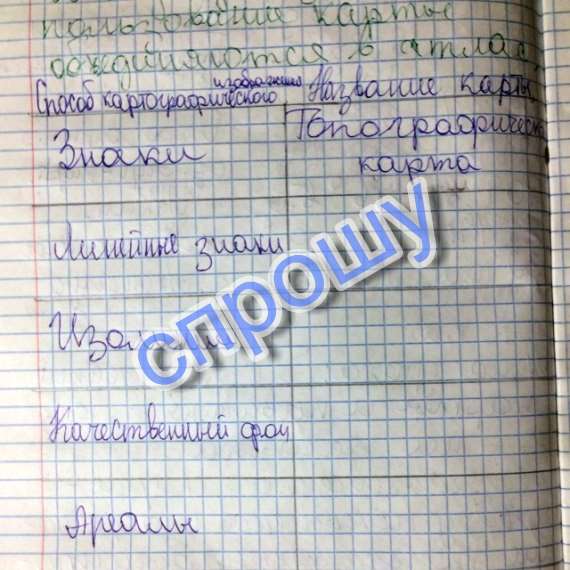 пользование карты
объединяются в атлас
Способ картографического изображения
Название карты
Знаки
Топографическая
карта
Линейные знаки
спрошу
Качественный фон
Ареалы